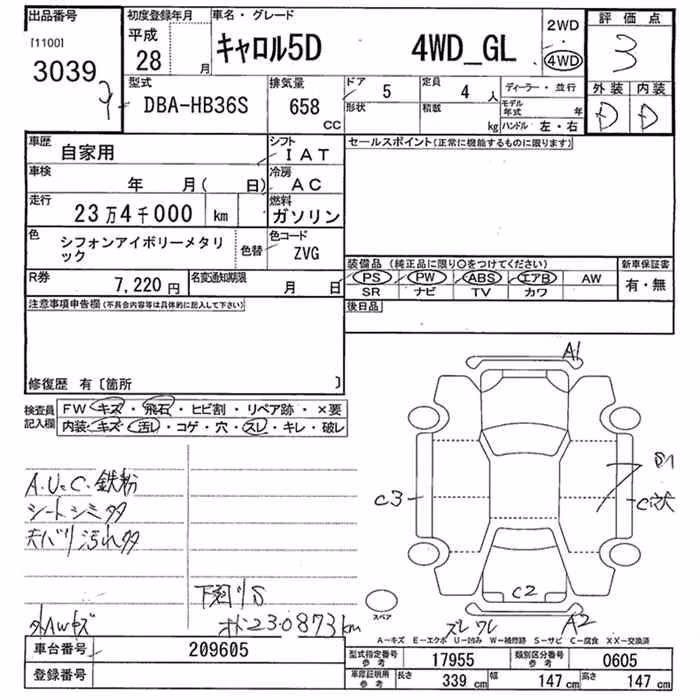 出品番号
[1100]
3039
初度登録年月
平成
28 月
車名・グレード
キャロル5D 4WD_GL
2WD
・
4WD
評価点
3
外装 内装
D D
型式
DBA-HB36S
排気量
658
CC
ドア 5
形状
定員 4 人
積載 kg
ディーラー・並行
モデル年式 年
ハンドル 左・右
車歴
自家用
シフト
IAT
車検
年 月( 日)
冷房
AC
走行
23万4千000 km
燃料
ガソリン
色
シフォンアイボリーメタリ
ック
色替
色コード
ZVG
R券
7,220円
名変通知期限
月 日
セールスポイント(正常に機能するものに限ります)
装備品(純正品に限り○をつけてください)
PS PW ABS エアB AW
SR ナビ TV カワ
新車保証書
有・無
後日品
注意事項申告欄(不具合内容等は具体的に記入して下さい)
修復歴 有〔箇所 〕
検査員
記入欄
FW キズ・飛石・ヒビ割・リペア跡・×要
内装:キズ・汚レ・コゲ・穴・スレ・キレ・破レ
鉄粉
シートシミ
汚れ
A1
S1
C3
C
C2
A2
スペア
230873km
A−キズ E−エクボ U−凹み W−補修跡 S−サビ C−腐食 XX−交換済
車台番号
209605
登録番号
型式指定番号
参考
17955
類別区分番号
参考
0605
車庫証明用
参考
長さ 339 cm
幅 147 cm
高さ 147 cm